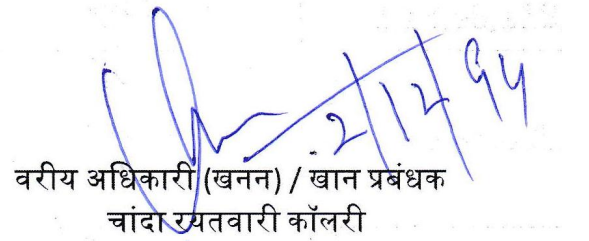 2/12/94
वरीय अधिकारी (खनन) / खान प्रबंधक
चांदा रयतवारी कॉलरी